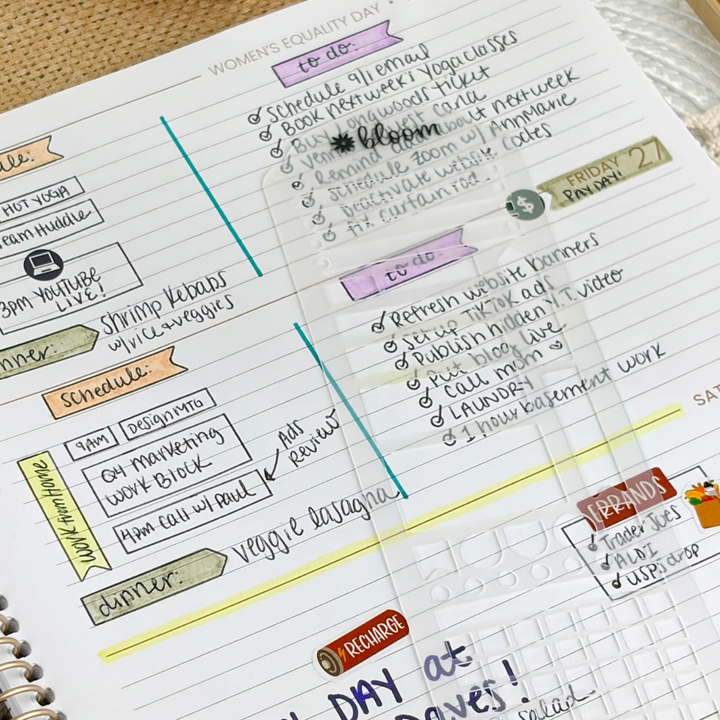 WOMEN'S EQUALITY DAY
to do:
Schedule 9/1 email
Book next week's yoga classes
Buy Longwoods ticket
card
Remind about next week
Schedule zoom w/ AnnMarie
Deactivate website codes
fix curtain rod
bloom
ule:
HOT YOGA
Team Huddle
3pm YOUTUBE
LIVE!
nner:
Shrimp Kebabs
w/ rice & veggies
FRIDAY 27
PAYDAY!
$
to do:
Refresh website banners
Set up TikTok ads
Publish hidden Y.T. video
Put blog live
Call mom
LAUNDRY
1 hour basement work
schedule:
9AM
Design MTG
Q4 marketing
work block
Ads
Review
4pm call w/ Paul
work from home
dinner:
veggie lasagna
SAT
ERRANDS
Trader Joes
ALDI
USPS drop
RECHARGE
DAY at
salad